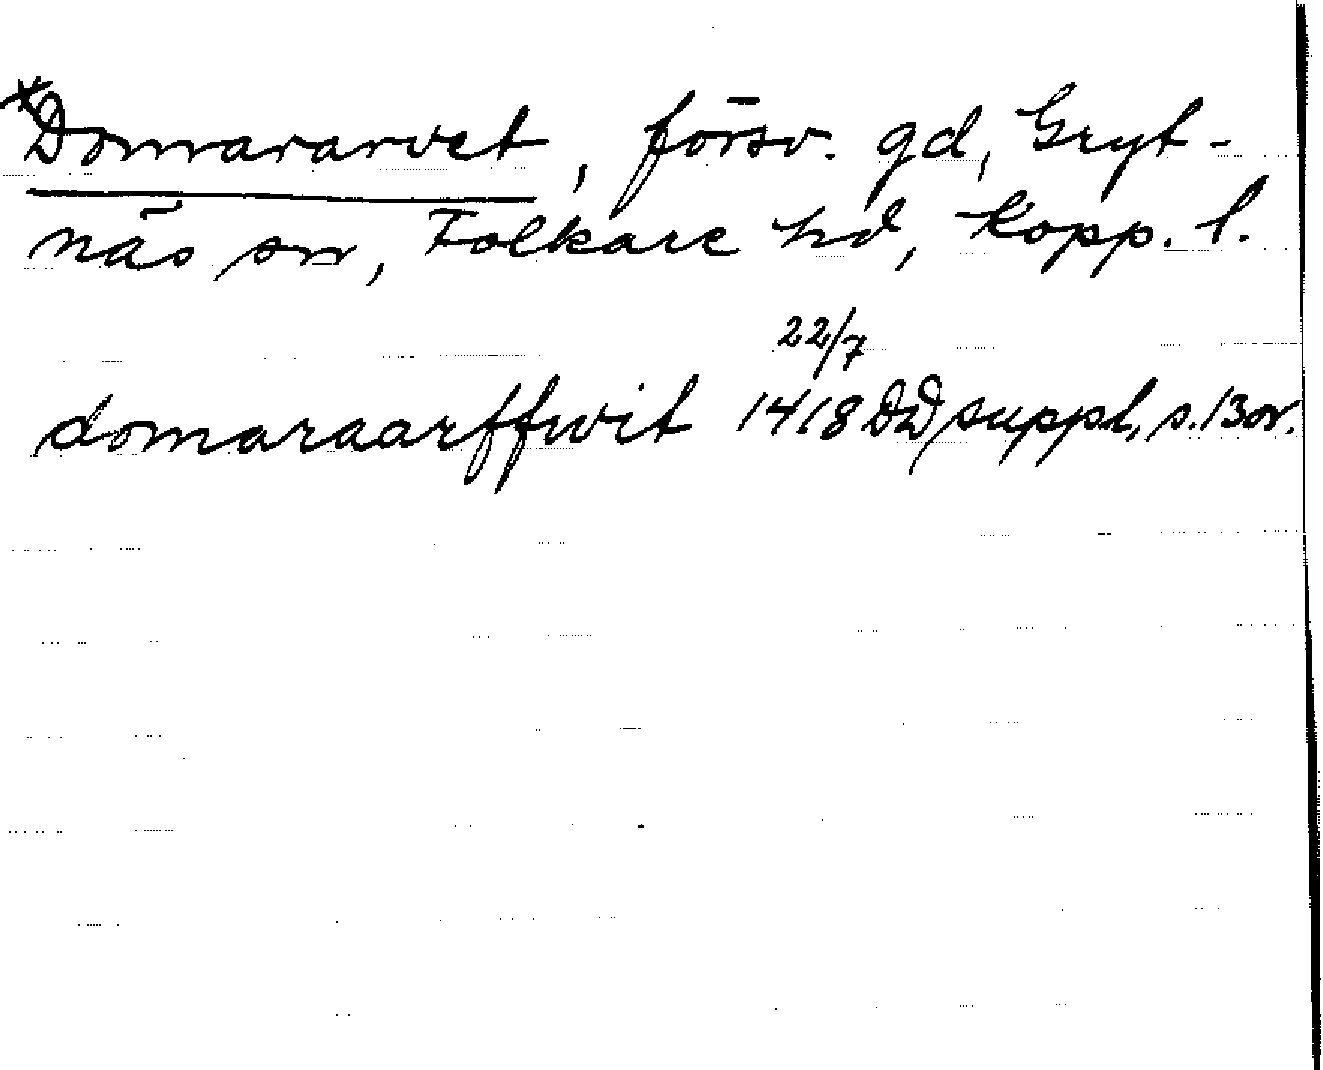 *Domararvet, försv. gd, Gryt-
näs sn, Folkare hd, Kopp. l.
22/7
domaraarffwit 1418 DD suppl, s. 13 or.